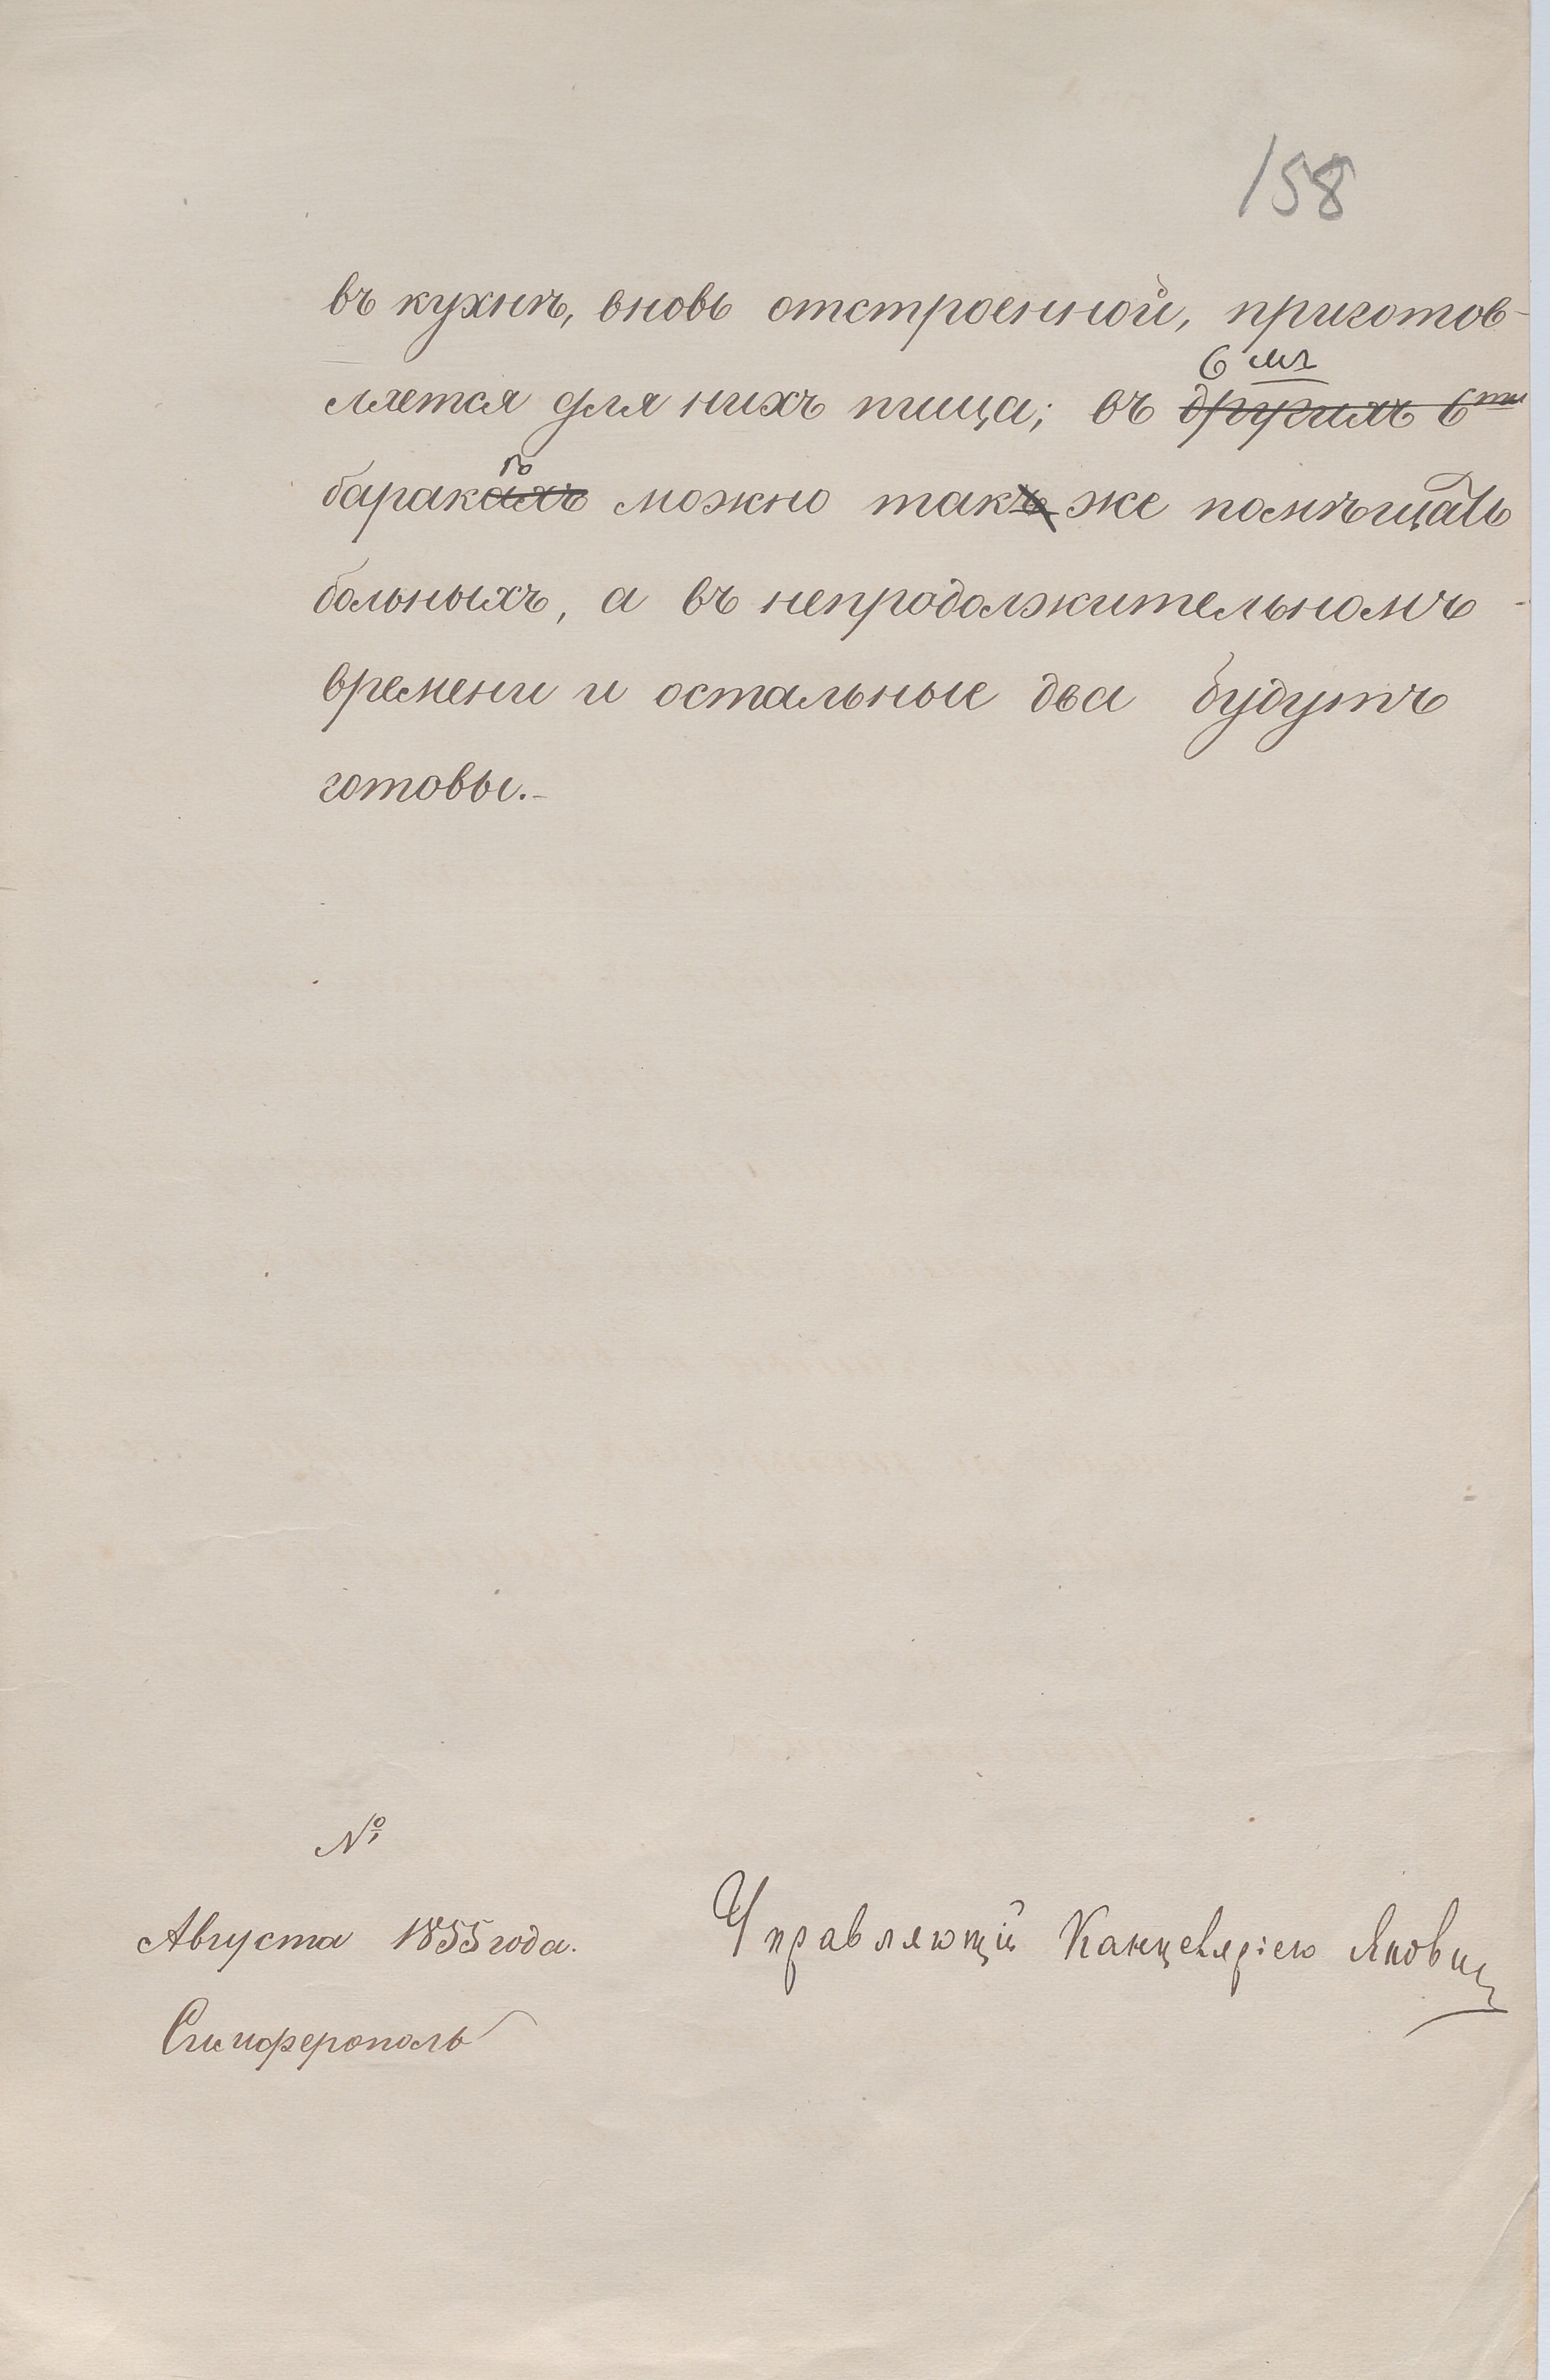 158
въ кухнѣ, вновь отстроенной, приготов-
6 мъ
ляется для нихъ пища; въ другихъ 6ти
ѣ
баракахъ можно такъ же помѣщать
больныхъ, а въ непродолжительномъ
времени и остальные два будутъ
готовы.-
№
Августа 1855 года.
Управляющій Канцеляріею
Симферополь